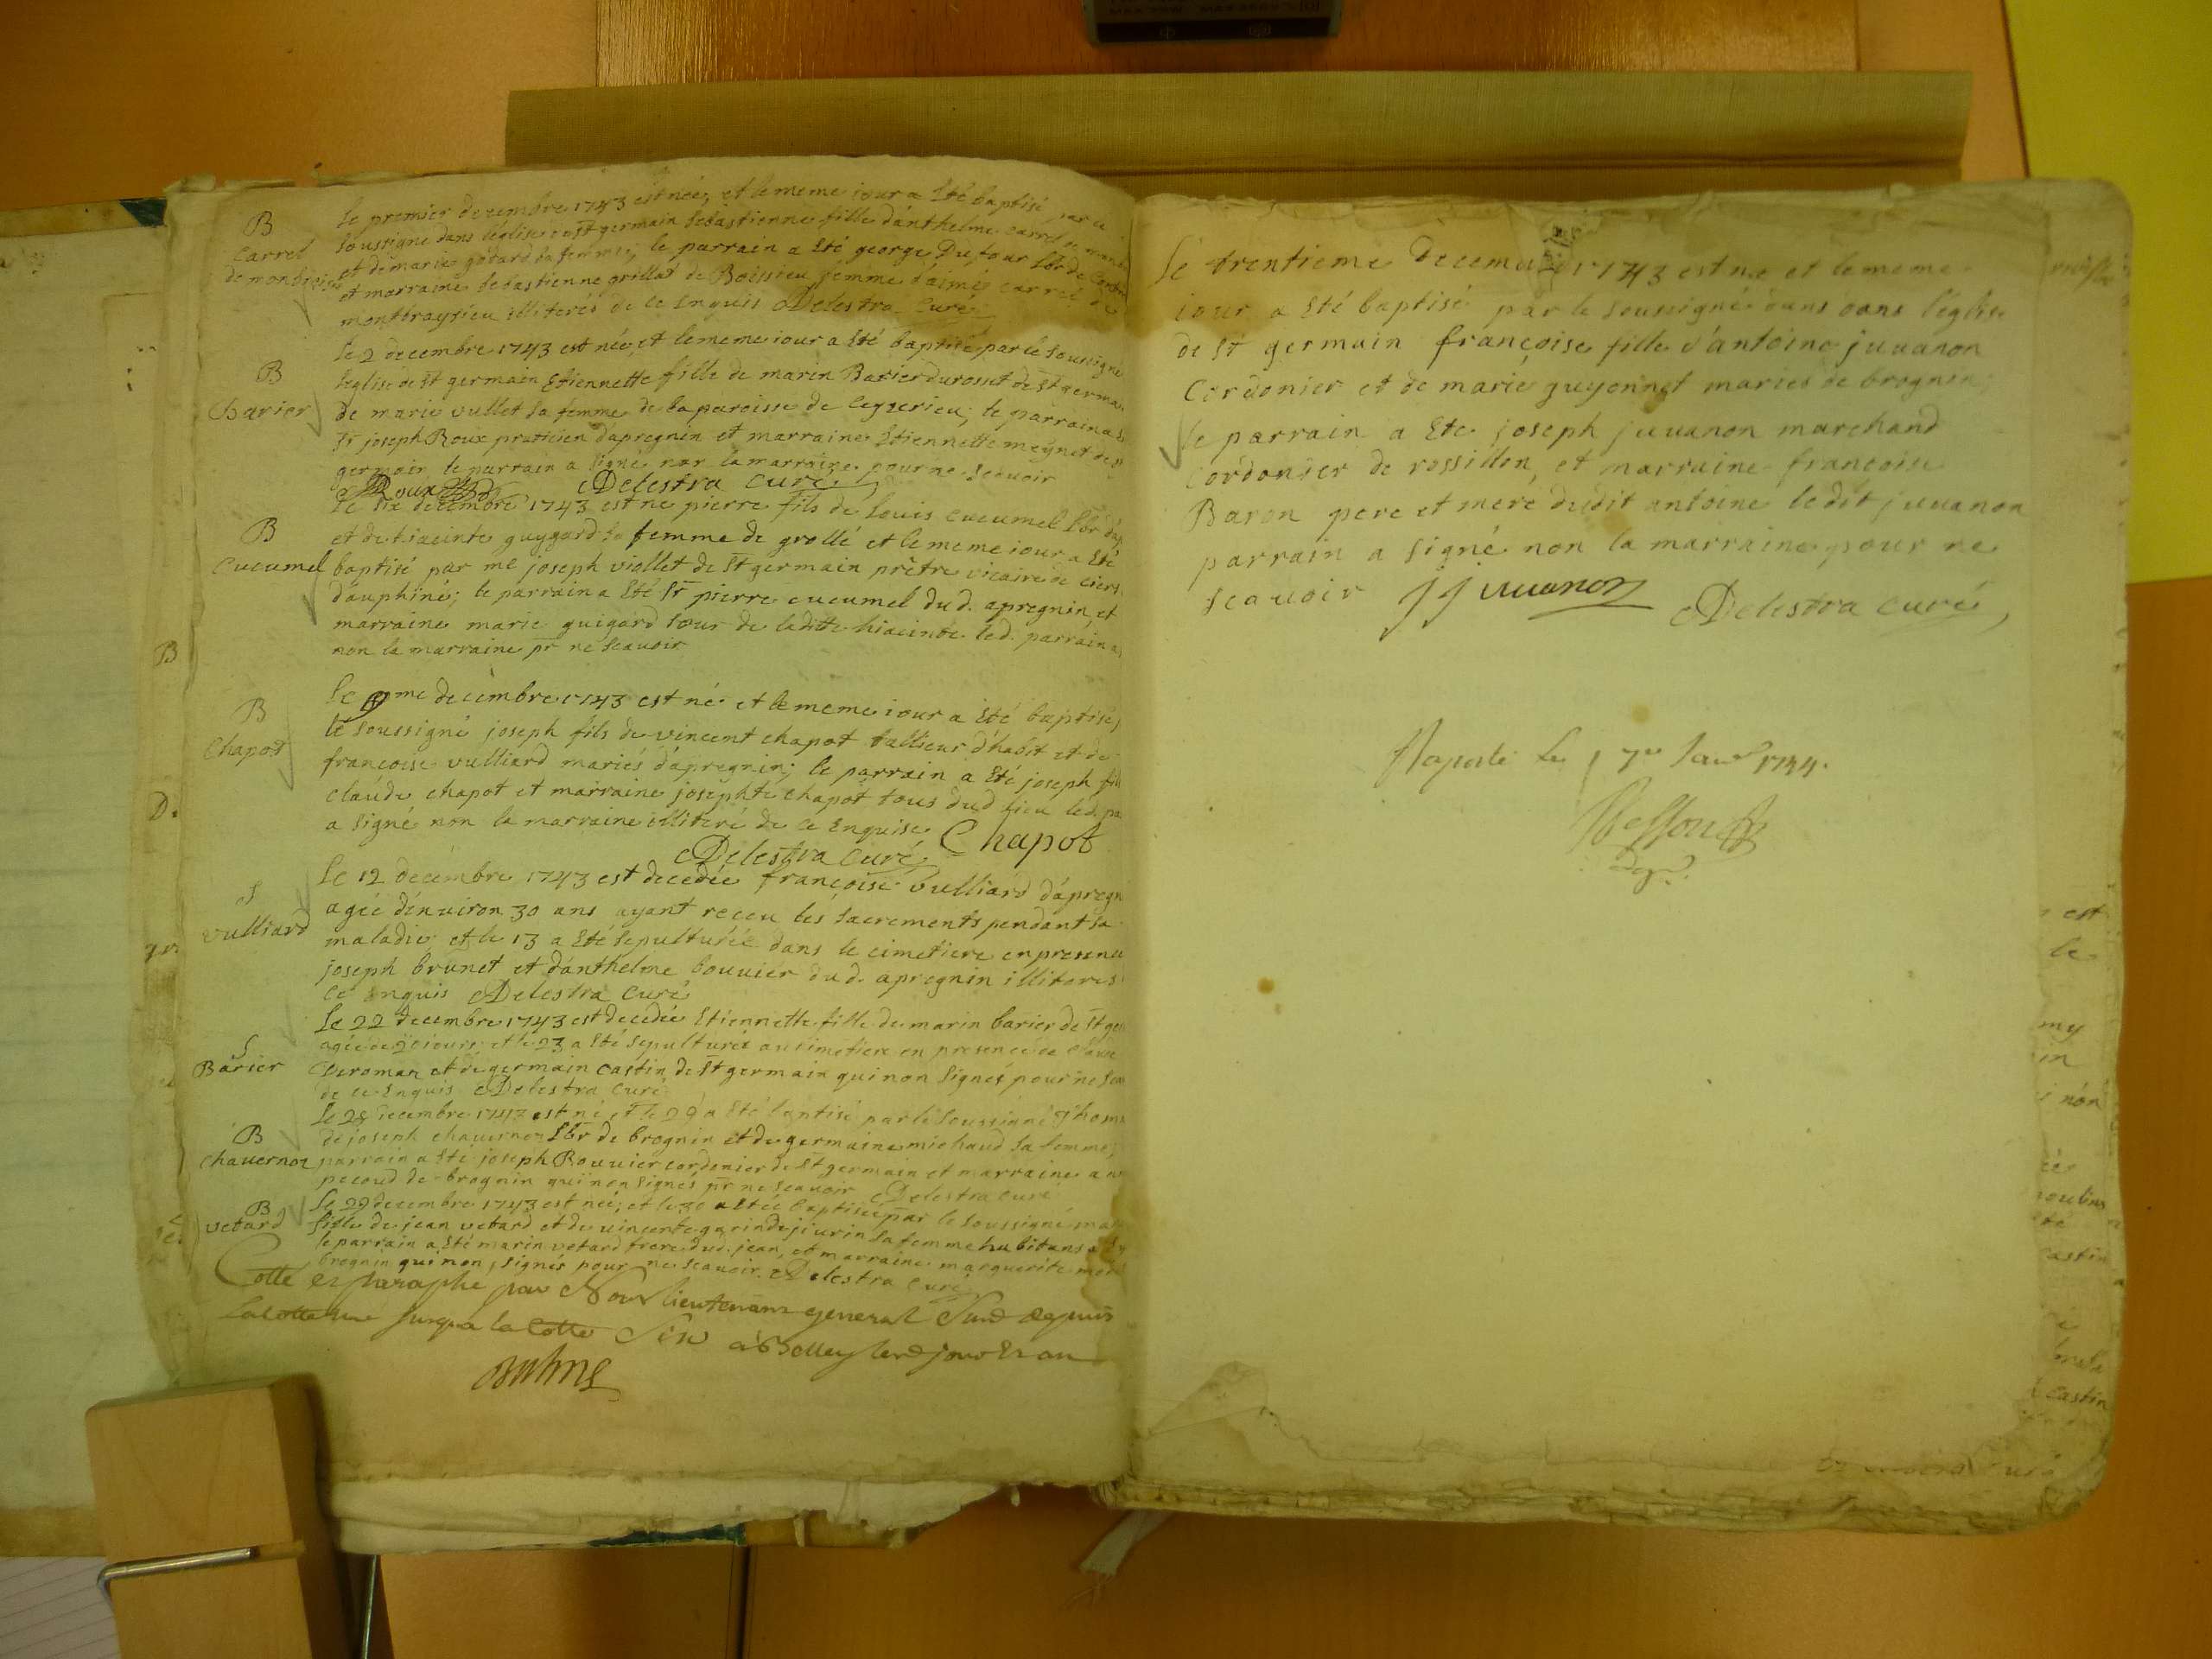 B
Carrel
Le premier decembre 1743 est née, et le meme iour a Eté baptisé par le
soussigné dans l'églisse de st germain sebastienne fille d'anthelme carrel de
et de marie godard sa femme, le parrain a Eté george Dufour lbr de
et marraine sebastienne grillat de Boissieu femme d'aimé carrel de
montbraysieu illiterés de ce Enquis Delestra Curé
B
Charier
le 2 decembre 1743 est née, et le meme iour a Eté baptisé par le soussigné
l'eglise de st germain Etiennette fille de marin Barier durosset de st germa
de marie vullet sa femme de la paroisse de Ceyzerieu; le parrain a
sr joseph Roux praticien d'apregnin et marraine Etiennette meynet de
germain le parrain a signé non la marraine pour ne scavoir
Roux Delestra Curé
Le six decembre 1743 est ne pierre fils de louis cucumel lbr d'ap
B
Cucumel
et de hiacinte guygard sa femme de grollé et le meme iour a Eté
baptisé par me joseph viollet de st germain prêtre vicaire de ciers
dauphiné; le parrain a Eté sr pierre cucumel dud. apregnin, et
marraine marie guigard sour de laditte hiacinte led. parrain a
non la marraine pr ne scavoir
B
Chapot
Le 9me decembre 1743 est né et le meme iour a Eté baptisé
le soussigné joseph fils de vincent chapot tallieur d'habit et de
francoise vulliard mariés d'apregnin; le parrain a Eté joseph fil
claude chapot et marraine josephte chapot tous dud lieu led. pa
a signé non la marraine illiteré de ce Enquise Chapot
Delestra Curé
S
vulliard
Le 12 decembre 1743 est decedée françoise vulliard d'apregn
agée d'enuiron 30 ans ayant receu les sacrements pendant sa
maladie et le 13 a Eté sepulturée dans le cimetiere en presence
joseph brunet et d'anthelme bouvier dud. apregnin illiteres
ce Enquis Delestra Curé
Le 22 decembre 1743 est decedée Etiennette fille de marin barier de st ge
S
Barier
agée de 20 iours et le 23 a Eté sepulturée au cimetiere en presence de
Deroman et de germain castin de st germain qui non signés pour ne sca
de ce Enquis Delestra Curé
Le 28 decembre 1743 est né et le 29 a Eté baptisé par le soussigné thom
B
Chauernoz
de joseph chauernoz lbr de brognin et de germaine michaud sa femme;
parrain a Eté joseph Bouvier cordonier de st germain et marraine an
pecoud de brognin qui non signés pr ne scauoir Delestra curé
B
vetard
Le 29 decembre 1743 est née, et le 30 a Eté baptisée par le soussigné ma
fille de jean vetard et de vincente garin de jiurin sa femme habitans a
le parrain a Eté marin vetard frere dud. jean, et marraine marguerite
brognin qui non signés pour ne scauoir Delestra curé
Cotté et paraphé par Nous lieutenant general Sud depuis
la cotte une jusqua la cotte Six a Belley led jour et an
Le trentieme decembre 1743 est ne et le meme
iour a Eté baptisé par le soussigné dans dans l'églisse
de st germain françoise fille d'antoine juuanon
Cordonier et de marie guyonnet mariés de brognin,
le parrain a Ete joseph juuanon marchand
cordonier de rossillon, et marraine françoise
Baron pere et mere dudit antoine ledit juuanon
parrain a signé non la marraine pour ne
scauoir J juuanon Delestra Curé
1744.